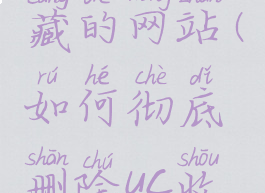 藏的网站(
rú hé chè dǐ
如何彻底
shān chú shōu
删除UC收